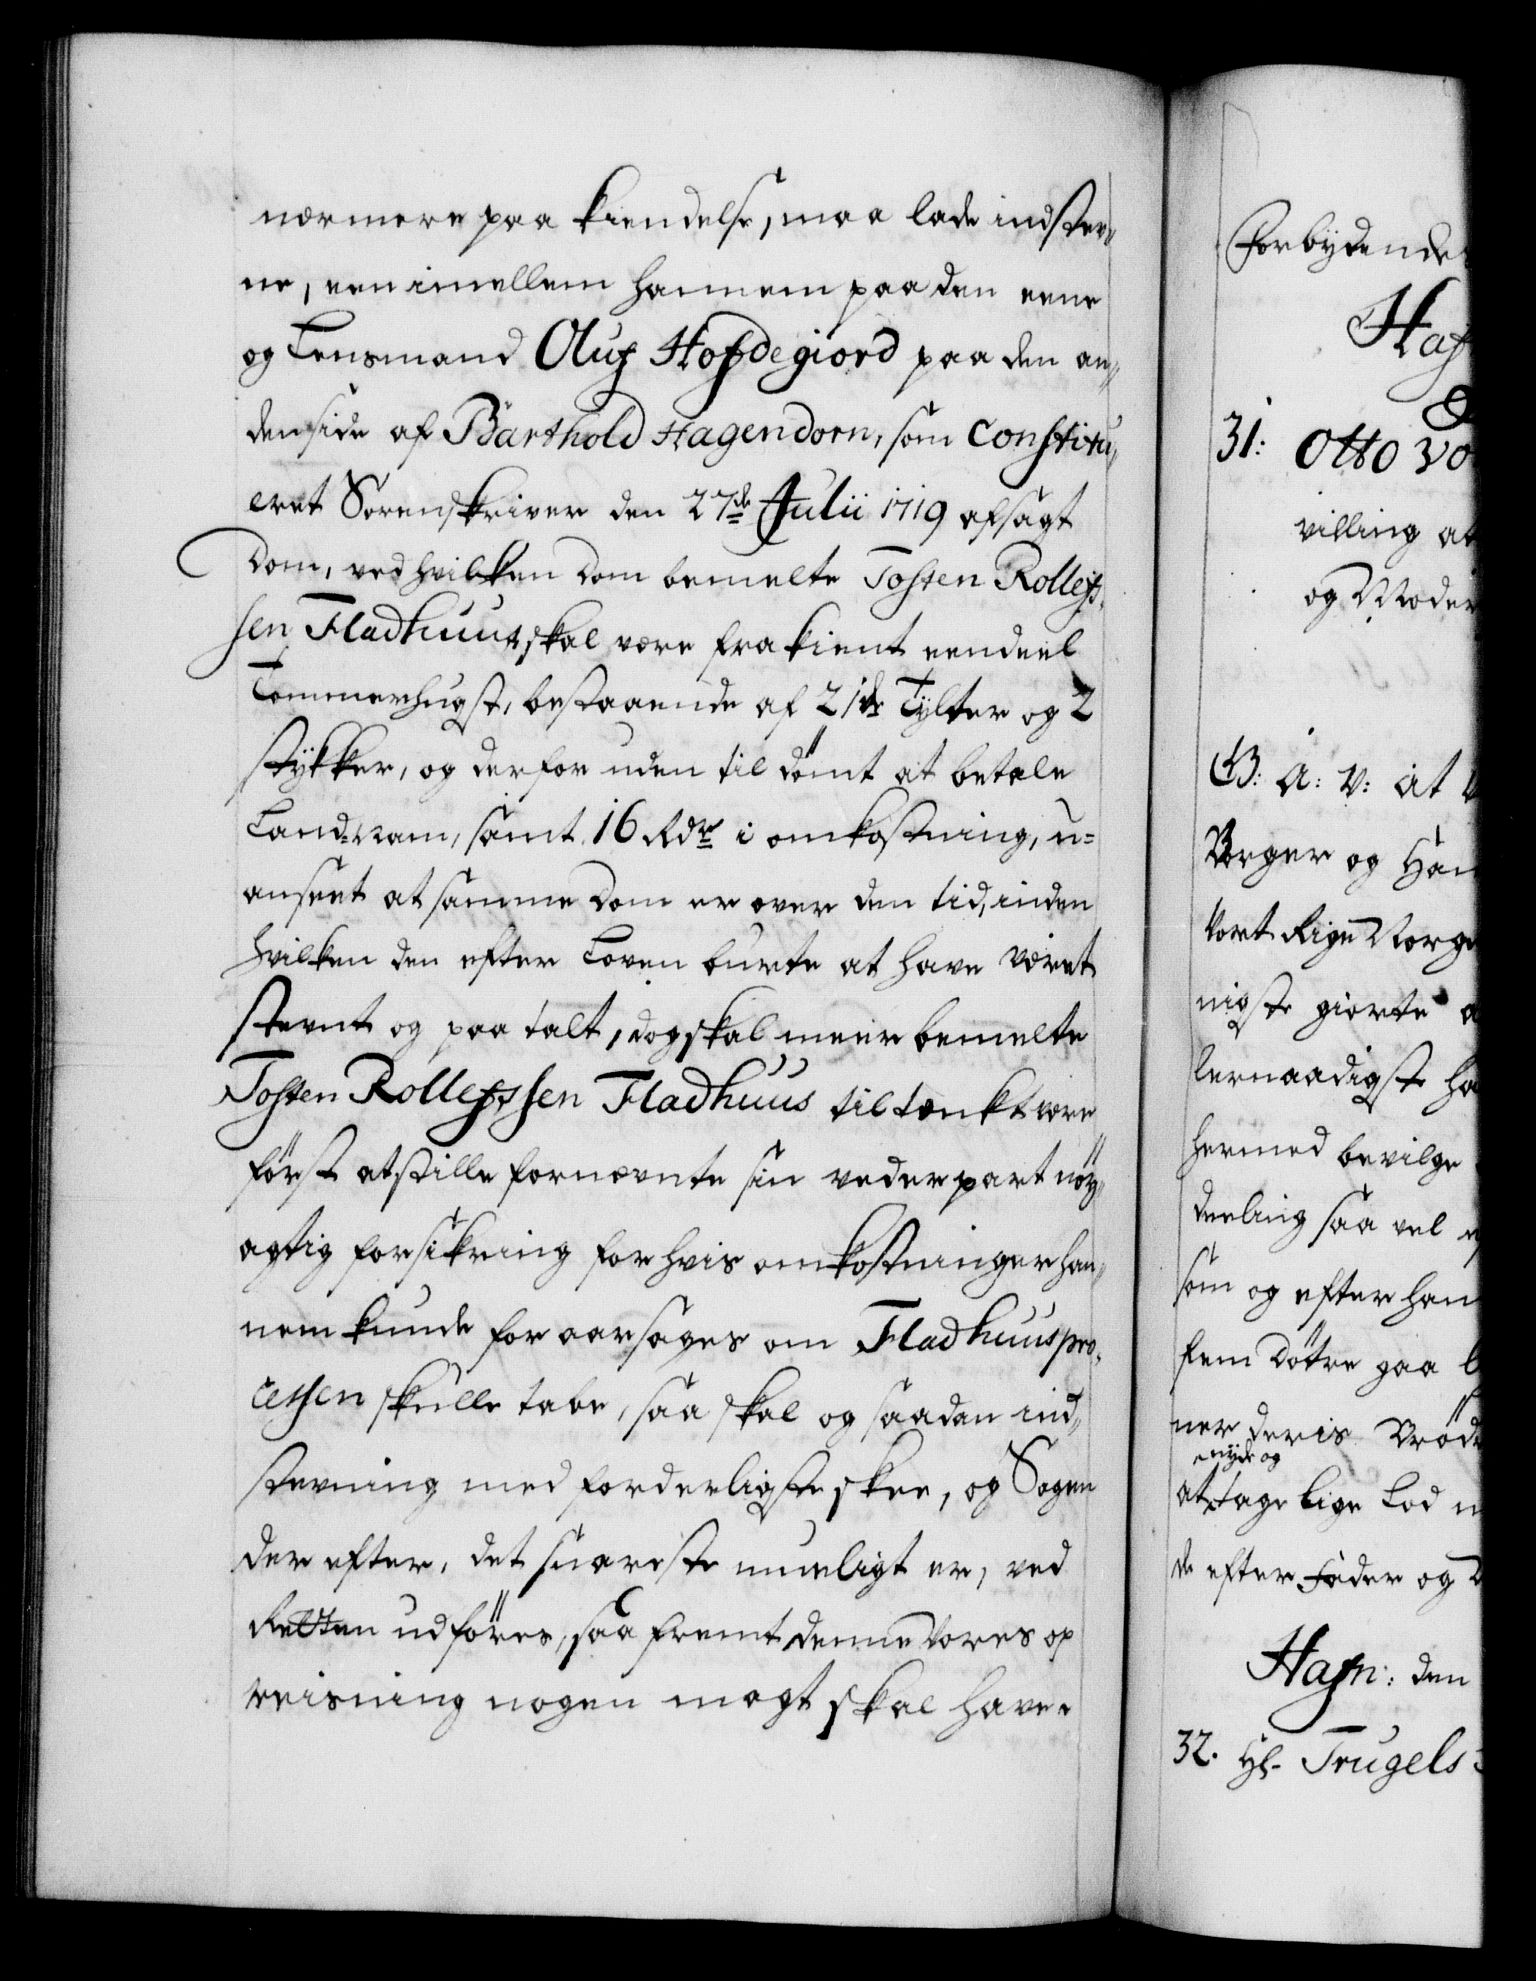 nærmere paa kiendelse, maa lade indstev„
ne, een imellem hannem paa den eene
og Lensmand Oluf Hofdegiord paa den an„
den side af Barthold Hagendorn, som Constitu„
eret Sorenskriver den 27de Julii 1719 afsagt
Dom, ved hvilken Dom bemelte Tosten Rolless„
sen Fladhuus skal være fra kient eendeel
Tømmerhugst, bestaaende af 21de Tylter og 2
stykker, og derforuden til dömt at betale
Land-Nam, samt 16 Rdr i omkostning, u=
anseet at samme Dom er over den tid, inden
hvilken den efter Loven burte at have været
stevnt og paa talt, dog skal meerbemelte
Tosten Rollessen Fladhuus til tænkt være
först at stille fornævnte sin vederpart nöy„
agtig forsikring for hvis omkostninger han„
nem kunde foraarsages om Fladhuus pro„
cessen skulle tabe, saa skal og saadan ind„
stevning med forderligste skee, og Sagen
der efter, det snareste mueligt er, ved
Retten udföres, saa fremt denne Vores op
reisning nogen magt skal have.
Forbydendes
Haf
31: Otto vo
villing at
og Moder
G: A: V: At V
Borger og Han
Vort Rige Norge
nigste giorte a
lernaadigste ha
hermed bevilge
deeling saa vel ef
som og efter han
fem Døtre paa b
ner deris Bröd
nyde og
at tage lige Lod m
de efter Fader og
Hafn: den
32. Hr. Trugels